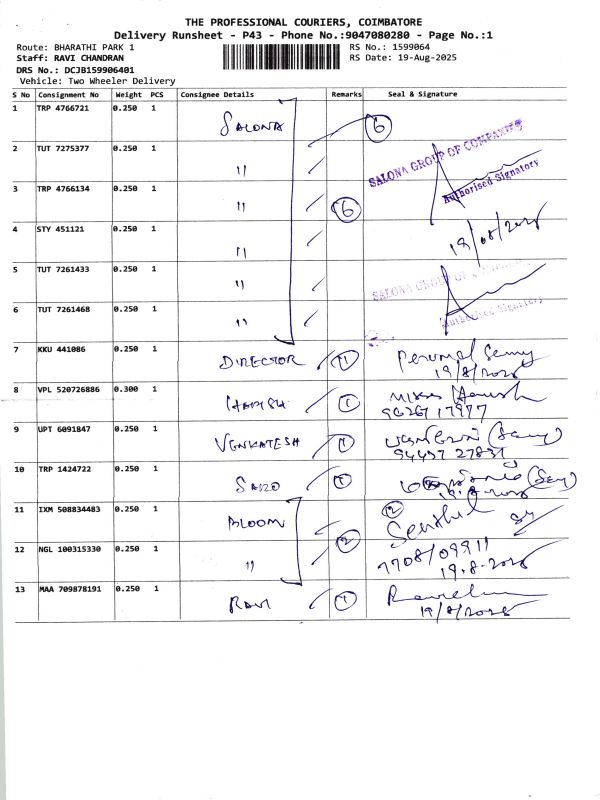 THE PROFESSIONAL COURIERS, COIMBATORE
Delivery Runsheet - P43 - Phone No.:9047080280 - Page No.:1
Route: BHARATHI PARK 1
RS No.: 1599064
Staff: RAVI CHANDRAN
RS Date: 19-Aug-2025
DRS No.: DCJB159906401
Vehicle: Two Wheeler Delivery
S No Consignment No Weight PCS Consignee Details Remarks Seal & Signature
1 TRP 4766721 0.250 1 SALONA 6
2 TUT 7275377 0.250 1 "
SALONA GROUP OF COMPANIES
Authorised Signatory
3 TRP 4766134 0.250 1 " 6
4 STY 451121 0.250 1 "
19/08/2025
5 TUT 7261433 0.250 1 "
SALONA GROUP OF COMPANIES
6 TUT 7261468 0.250 1 "
Authorised Signatory
7 KKU 441086 0.250 1 DIRECTOR 1
19/8/2025
8 VPL 520726886 0.300 1 HARISH 1
9 UPT 6091847 0.250 1 VENKATESH 1
94437 27831
10 TRP 1424722 0.250 1 1
19-8-2025
11 IXM 508834483 0.250 1 BLOOM 2
Senthil
12 NGL 100315330 0.250 1 " 2
19.8.2025
13 MAA 709878191 0.250 1 RAVI 1
19/8/2025